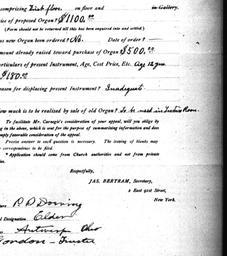 comprising first floor. on floor and in Gallery.
of proposed Organ? $1100.00
(Form should not be returned till this has been inquired into and settled)
new Organ been ordered? No. Date of order? —
amount already raised toward purchase of Organ $500.00
Particulars of present Instrument, Age, Cost Price, Etc. Age 12 yrs
$180.00
Reason for displacing present Instrument? Inadequate
How much is to be realized by sale of old Organ? To be used in Lecture Room.
To facilitate Mr. Carnegie's consideration of your appeal, will you oblige by
in the above, which is sent for the purpose of summarizing information and does
imply favorable consideration of the appeal.
Precise answer to each question is necessary. The issuing of blanks may
correspondence to be filed.
Application should come from Church authorities and not from private
Respectfully,
JAS. BERTRAM, Secretary,
2 East 91st Street,
New York.
Designation Elder
Antwerp Ohio
Trustee